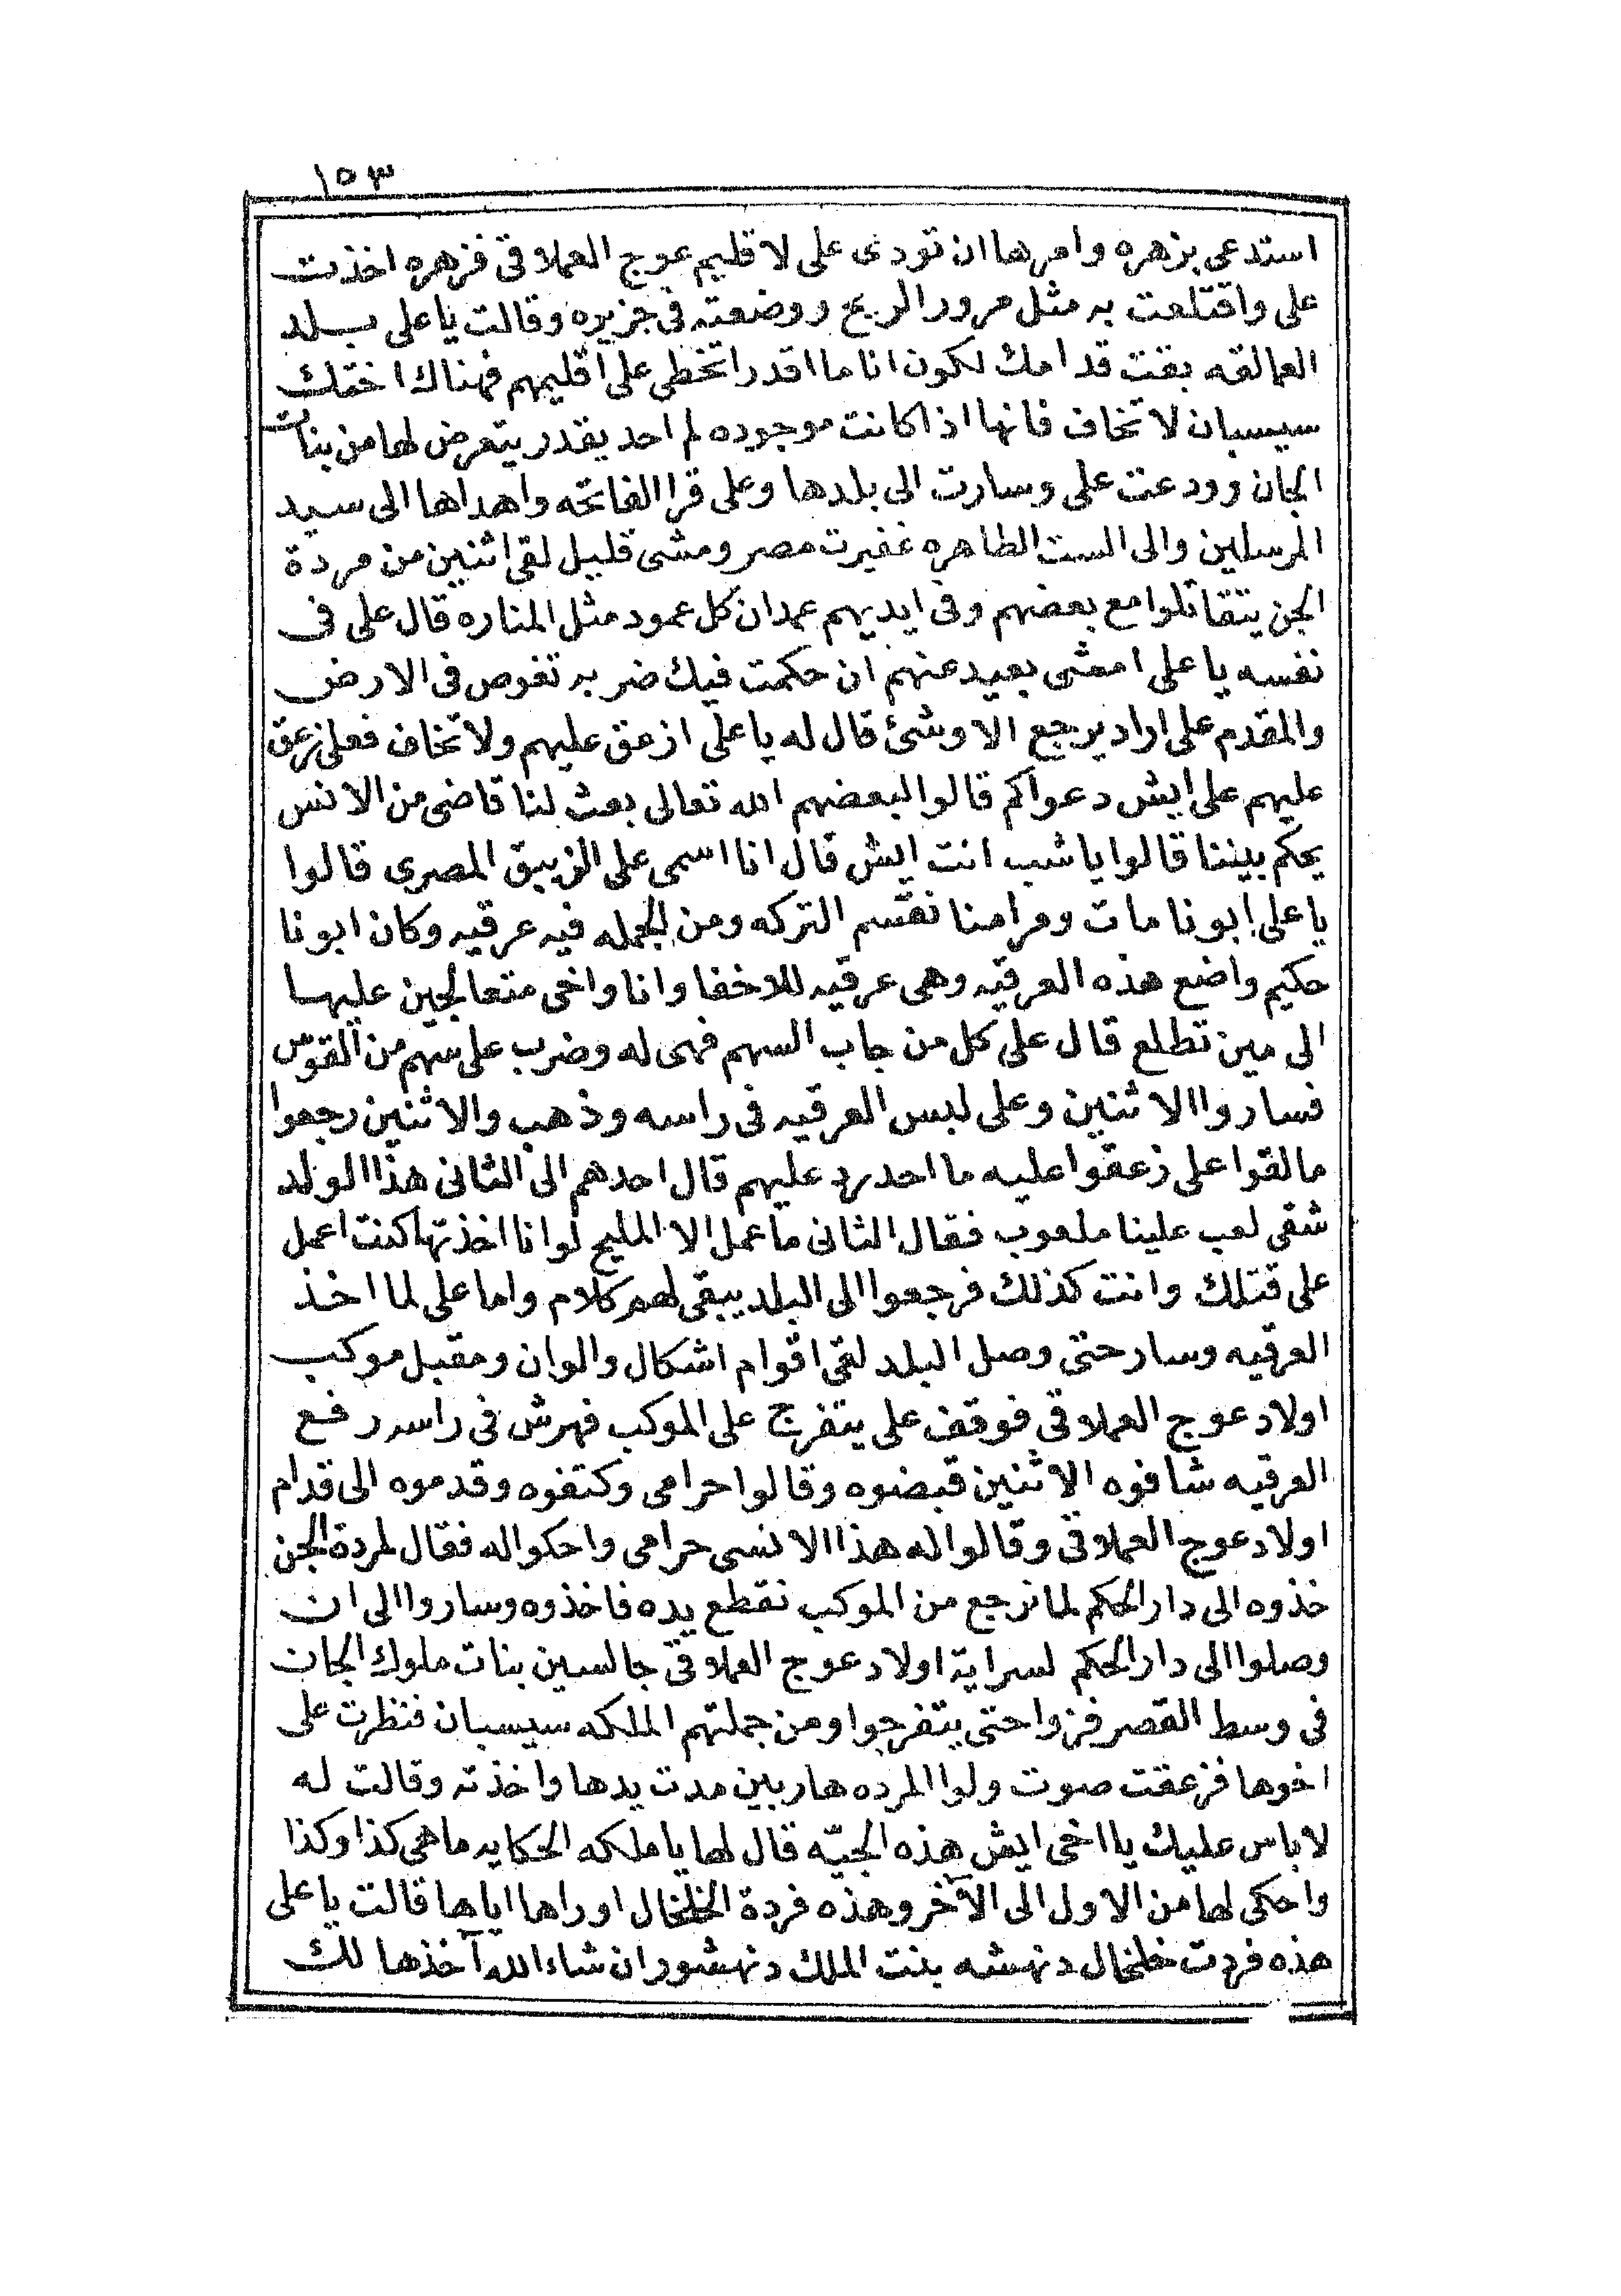 ١٥٣
استدعى بزهره وامرها ان تودى على لاقليم عوج العملاقى فزهره اخذت
على واقتلعت به مثل مرور الريح ووضعته فى جزيره وقالت يا على بلد
العمالقه بقت قدامك لكون انا ما اقدر اتخطى على اقليمهم فهناك اختك
سيسبان لا تخاف فانها اذا كانت موجوده لم احد يقدر يتعرض لها من بنات
الجان وودعت على وسارت الى بلدها وعلى قرا الفاتحه واهداها الى سيد
المرسلين والى الست الطاهره غفيرت مصر ومشى قليل لقى اثنين من مردة
الجن يتقاتلوا مع بعضهم وفى ايديهم عمدان كل عمود مثل المناره قال على فى
نفسه يا على امشى بعيد عنهم ان حكمت فيك ضربه تغوص فى الارض
والمقدم على اراد يرجع الا وشئ قال له يا على ازعق عليهم ولا تخاف فعلى زعق
عليهم على ايش دعواكم قالوا لبعضهم الله تعالى بعث لنا قاضى من الانس
يحكم بيننا قالوا يا شب انت ايش قال انا اسمى على الزيبق المصرى قالوا
يا على ابونا مات ومرامنا نقسم التركه ومن الجمله فيه عرقيه وكان ابونا
حكيم واضع هذه العرقيه وهى عرقيه للاخفا وانا واخى متعالجين عليها
الى مين تطلع قال على كل من جاب السهم فهى له وضرب على سهم من القوس
فساروا الاثنين وعلى لبس العرقيه فى راسه وذهب والاثنين رجعوا
ما لقوا على زعقوا عليه ما احد رد عليهم قال احدهم الى الثانى هذا الولد
شقى لعب علينا ملعوب فقال الثانى ما عمل الا المليح لو انا اخذتها كنت اعمل
على قتلك وانت كذلك فرجعوا الى البلد يبقى لهم كلام واما على لما اخذ
العرقيه وسار حتى وصل البلد لقى اقوام اشكال والوان ومقبل موكب
اولاد عوج العملاقى فوقف على يتفرج على الموكب فهرش فى راسه رفع
العرقيه شافوه الاثنين قبضوه وقالوا حرامى وكتفوه وقدموه الى قدام
اولاد عوج العملاقى وقالوا له هذا الانسى حرامى واحكوا له فقال لمردة الجن
خذوه الى دار الحكم لما نرجع من الموكب نقطع يده فاخذوه وساروا الى ان
وصلوا الى دار الحكم لسراية اولاد عوج العملاقى جالسين بنات ملوك الجان
فى وسط القصر فزوا حتى يتفرجوا ومن جملتهم الملكه سيسبان فنظرت على
اخوها فزعقت صوت ولوا المرده هاربين مدت يدها واخذته وقالت له
لا باس عليك يا اخى ايش هذه الجيّه قال لها يا ملكه الحكايه ما هى كذا وكذا
واحكى لها من الاول الى الآخر وهذه فردة الخلخال اوراها اياها قالت يا على
هذه فردت خلخال دنهشه بنت الملك دنهشور ان شاء الله آخذها لك